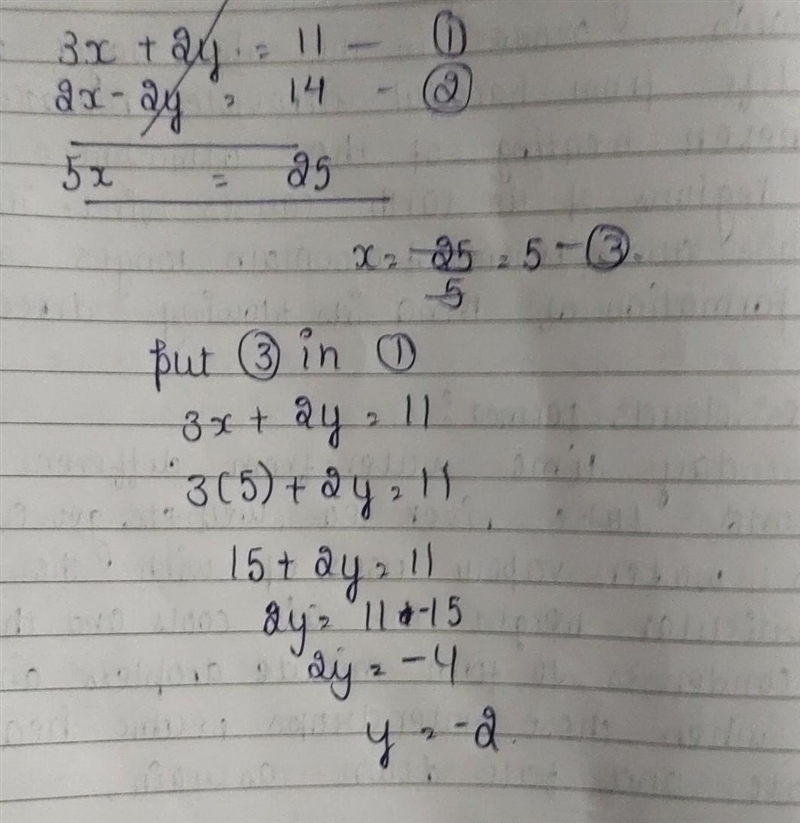 3x + 2y = 11 - ①
2x - 2y = 14 - ②
5x = 25
x = 25/5 = 5 - ③
put ③ in ①
3x + 2y = 11
3(5) + 2y = 11
15 + 2y = 11
2y = 11 - 15
2y = -4
y = -2